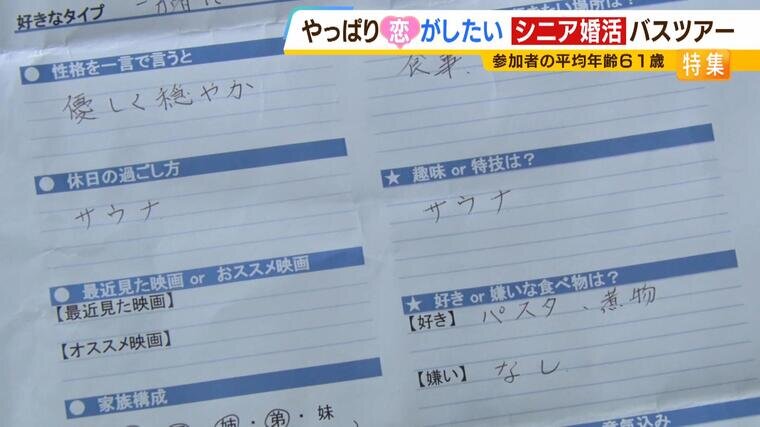 やっぱり恋がしたい シニア婚活 バスツアー
参加者の平均年齢61歳 特集
好きなタイプ
● 性格を一言で言うと
優しく穏やか
● 休日の過ごし方
サウナ
● 最近見た映画 or おススメ映画
【最近見た映画】
【オススメ映画】
● 家族構成
姉・弟・妹
食事
★ 趣味 or 特技は?
サウナ
★ 好き or 嫌いな食べ物は?
【好き】 パスタ、煮物
【嫌い】 なし
意気込み